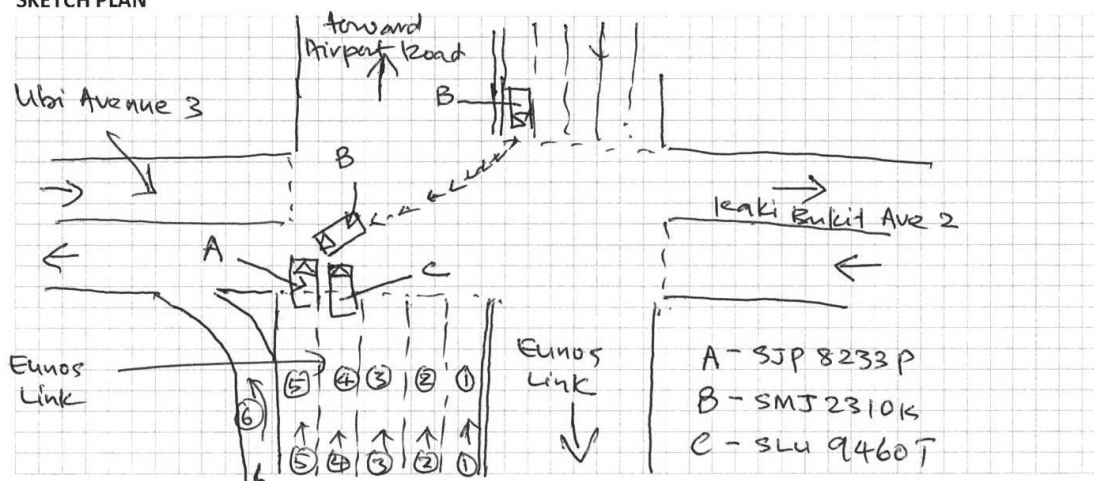 SKETCH PLAN
toward
Airport Road
Ubi Avenue 3
B
B
A
C
Kaki Bukit Ave 2
Eunos
Link
Eunos
Link
⑤ ④ ③ ② ①
⑥
⑤ ④ ③ ② ①
A - SJP 8233P
B - SMJ 2310K
C - SLU 9460T